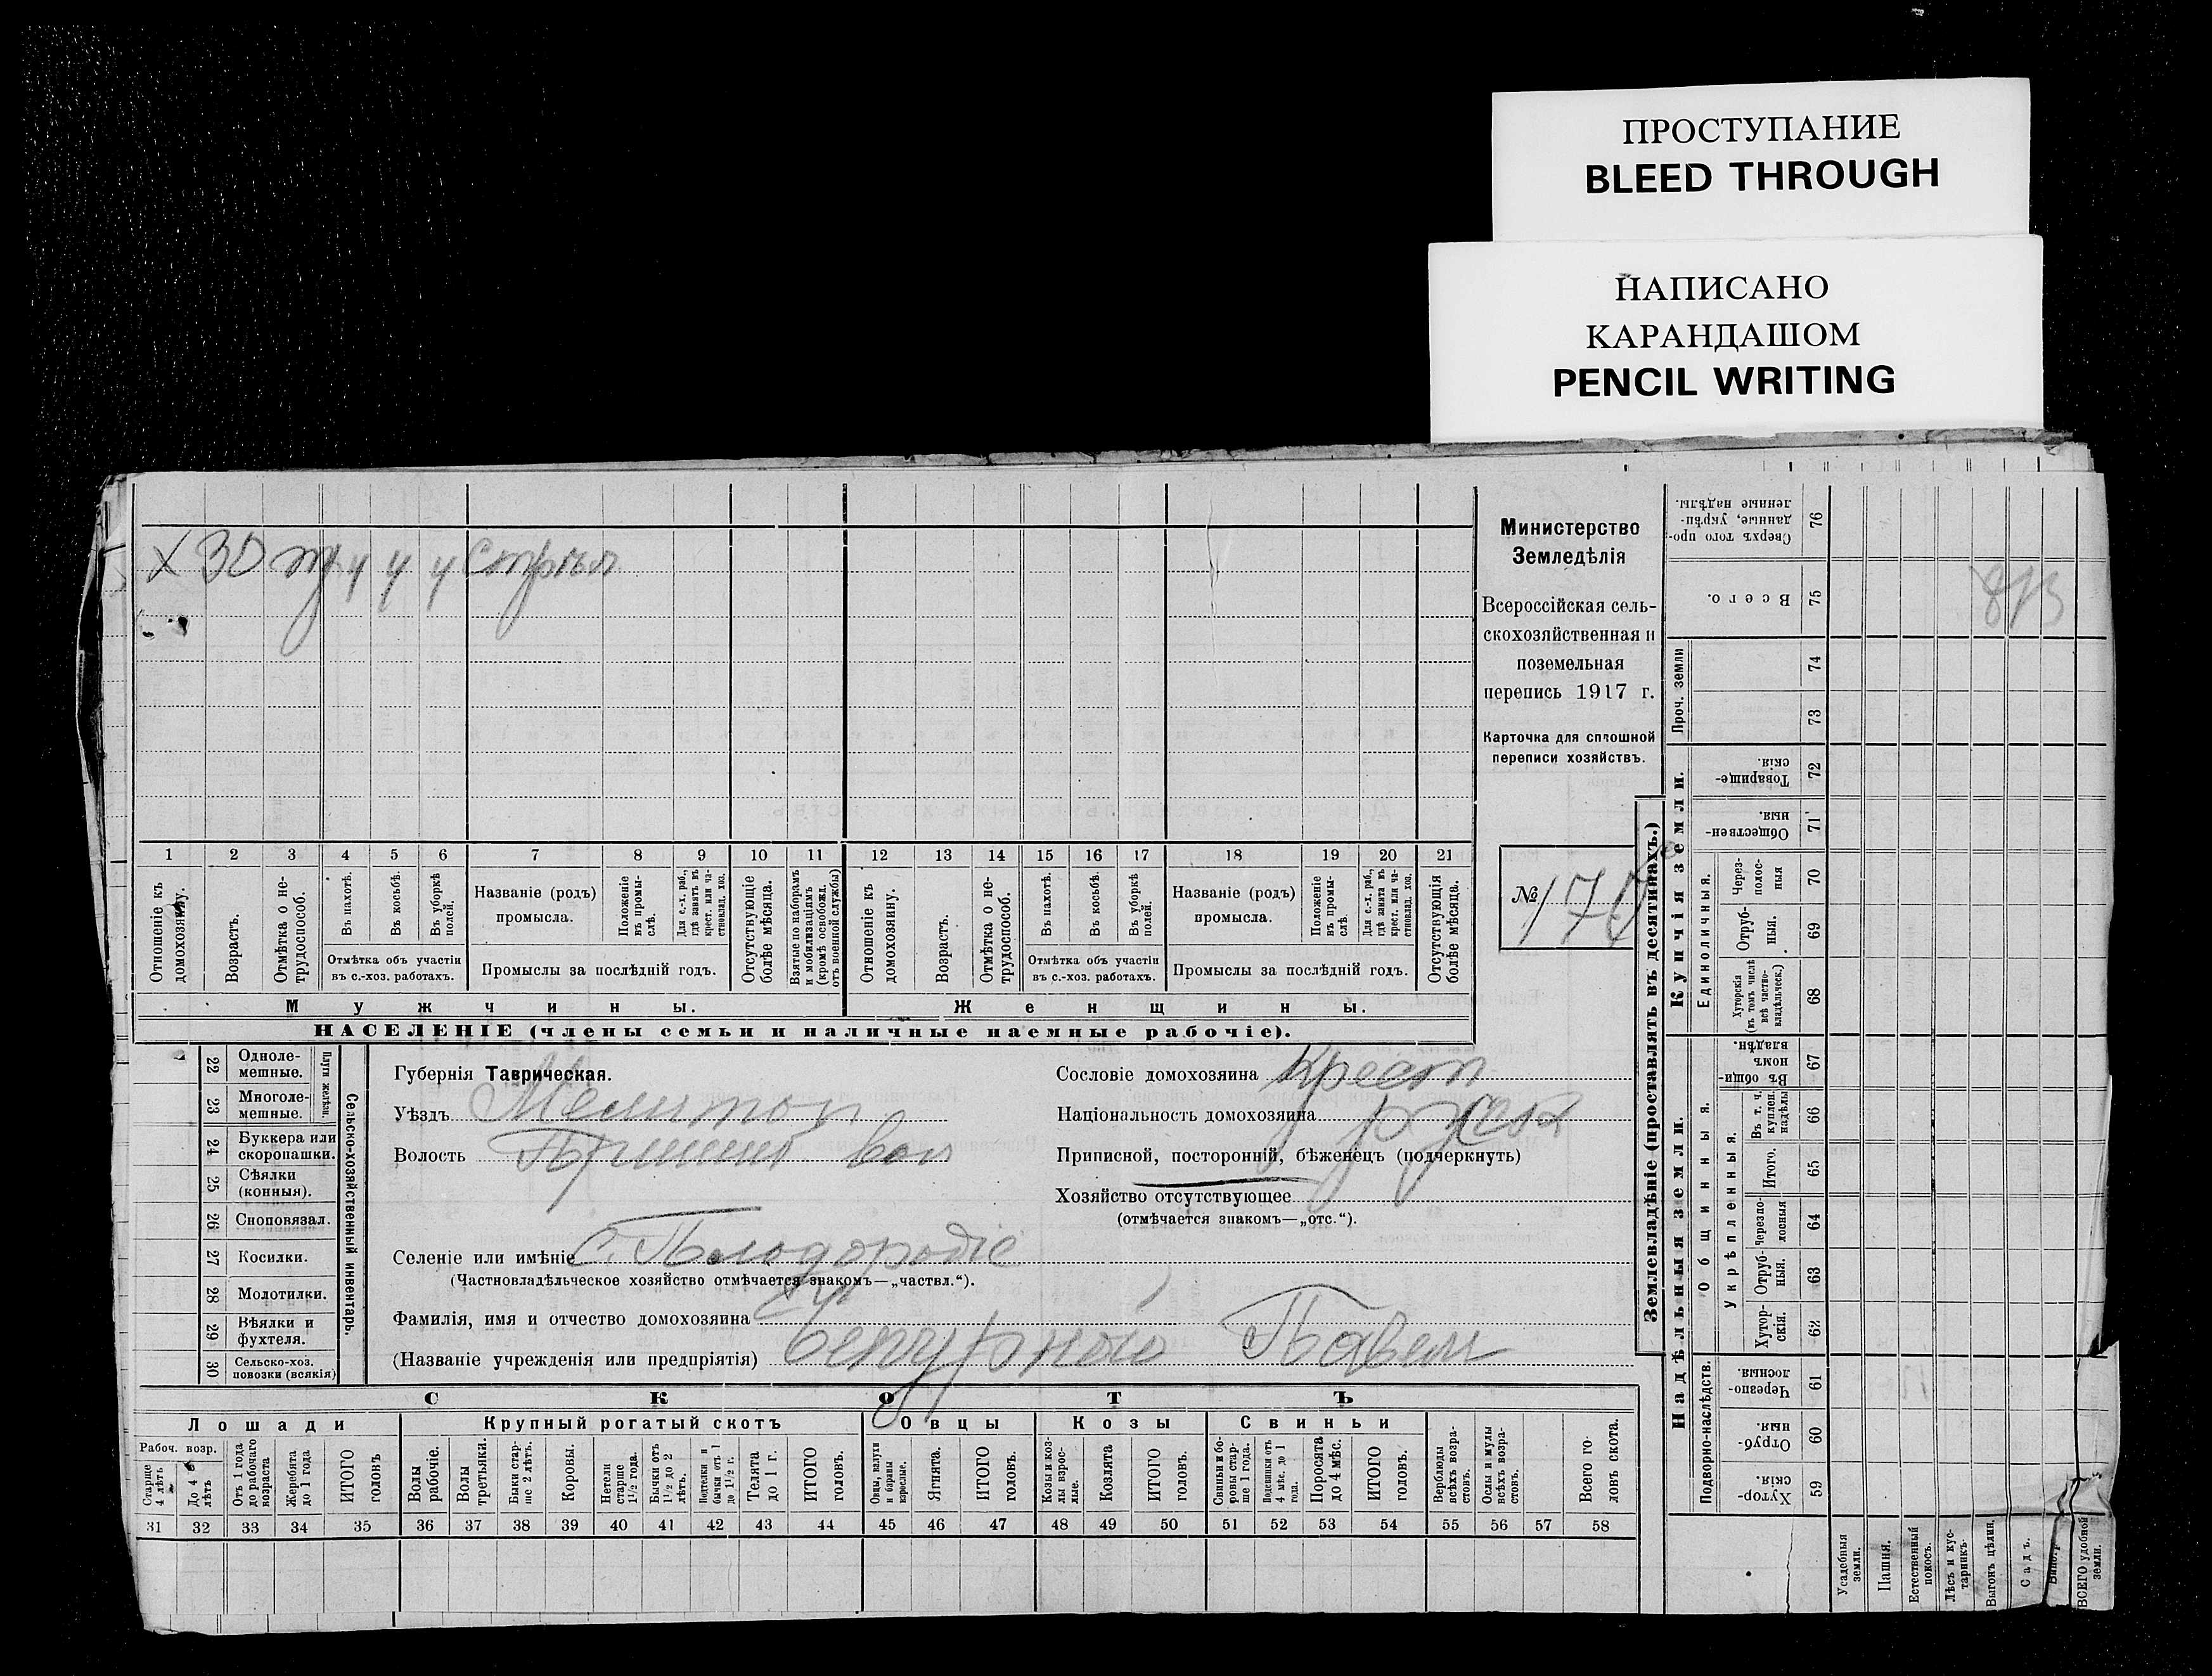 ПРОСТУПАНИЕ
BLEED THROUGH
НАПИСАНО
КАРАНДАШОМ
PENCIL WRITING
Х 30 т ч ч ч
1 2 3 4 5 6 7 8 9 10 11 12 13 14 15 16 17 18 19 20 21
Отношеніе къ домохозяину.
Возрастъ.
Отмѣтка о не-
трудоспособ.
Въ пахотѣ.
Въ косьбѣ.
Въ уборкѣ
полей.
Отмѣтка объ участіи
въ с.-хоз. работахъ.
Названіе (родъ)
промысла.
Положеніе
въ промы-
слѣ.
Для с.-х. раб.,
гдѣ занятъ въ
крест. или ча-
стновлад. хоз.
Промыслы за послѣдній годъ.
Отсутствующіе
болѣе мѣсяца.
Взятые по наборамъ
и мобилизаціямъ
(кромѣ освобожд.
отъ военной службы)
Отношеніе къ
домохозяину.
Возрастъ.
Отмѣтка о не-
трудоспособ.
Въ пахотѣ.
Въ косьбѣ.
Въ уборкѣ
полей.
Отмѣтка объ участіи
въ с.-хоз. работахъ.
Названіе (родъ)
промысла.
Положеніе
въ промы-
слѣ.
Для с.-х. раб.,
гдѣ занята въ
крест. или ча-
стновлад. хоз.
Промыслы за послѣдній годъ.
Отсутствующія
болѣе мѣсяца.
Мужчины.
Женщины.
НАСЕЛЕНІЕ (члены семьи и наличные наемные рабочіе).
Министерство
Земледѣлія
Всероссійская сель-
скохозяйственная и
поземельная
перепись 1917 г.
Карточка для сплошной
переписи хозяйствъ.
№
22 Одноле-
мешные.
23 Многоле-
мешные.
Плуги желѣзн.
24 Буккера или
скоропашки.
25 Сѣялки
(конныя).
26 Сноповязал.
27 Косилки.
28 Молотилки.
29 Вѣялки и
фухтеля.
30 Сельско-хоз.
повозки (всякія)
Сельско-хозяйственный инвентарь.
Губернія Таврическая.
Уѣздъ Мелитоп
Волость вол
Селеніе или имѣніе с.
(Частновладѣльческое хозяйство отмѣчается знакомъ—„частвл.“).
Фамилія, имя и отчество домохозяина
(Названіе учрежденія или предпріятія) Павел
Сословіе домохозяина Крест
Національность домохозяина
Приписной, посторонній, бѣженецъ (подчеркнуть)
Хозяйство отсутствующее
(отмѣчается знакомъ—„отс.“).
СКОТЪ
Лошади
Рабоч. возр.
Старше
4 лѣтъ
До 4
лѣтъ
Отъ 1 года
до рабочаго
возраста
Жеребята
до 1 года
ИТОГО
головъ
Крупный рогатый скотъ
Волы
рабочіе.
Волы
третьяки.
Быки стар-
ше 2 лѣтъ.
Коровы.
Нетели
старше
1½ года.
Бычки отъ
1½ до 2
лѣтъ.
Нетелки и
бычки отъ 1
до 1½ г.
Телята
до 1 г.
ИТОГО
головъ.
Овцы
Овцы, валухи
и бараны
взрослые.
Ягнята.
ИТОГО
головъ.
Козы
Козы и коз-
лы взрос-
лые.
Козлята
ИТОГО
головъ.
Свиньи
Свиньи и бо-
ровы стар-
ше 1 года.
Подсвинки отъ
4 мѣс. до 1
года.
Поросята
до 4 мѣс.
ИТОГО
головъ.
Верблюды
всѣхъ возра-
стовъ.
Ослы и мулы
всѣхъ возра-
стовъ.
Всего го-
ловъ скота.
31 32 33 34 35 36 37 38 39 40 41 42 43 44 45 46 47 48 49 50 51 52 53 54 55 56 57 58
Землевладѣніе (проставлять въ десятинахъ.)
Сверхъ того про-
данные, укрѣп-
ленные надѣлы.
76
Всего.
75
Проч. земли
74
73
Купчія земли.
Товарище-
скія.
72
Обществен-
ныя.
71
Единоличныя.
Через-
полос-
ныя
70
Отруб-
ныя.
69
Хуторскія
(въ томъ числѣ
всѣ частно-
владѣльческ.)
68
Надѣльныя земли.
Общинныя.
Въ общи-
номъ
владѣн.
67
Укрѣпленныя.
Въ т. ч.
куплен.
надѣлы
66
Итого.
65
Черезпо-
лосныя
64
Отруб-
ныя.
63
Хутор-
скія.
62
Подворно-наслѣдств.
Черезпо-
лосныя
61
Отруб-
ныя
60
Хутор-
скія.
59
Усадебныя
земли.
Пашня.
Естественный
покосъ.
Лѣсъ и кус-
тарникъ.
Выгонъ, цѣлин.
Садъ.
ВСЕГО удобной
земли.